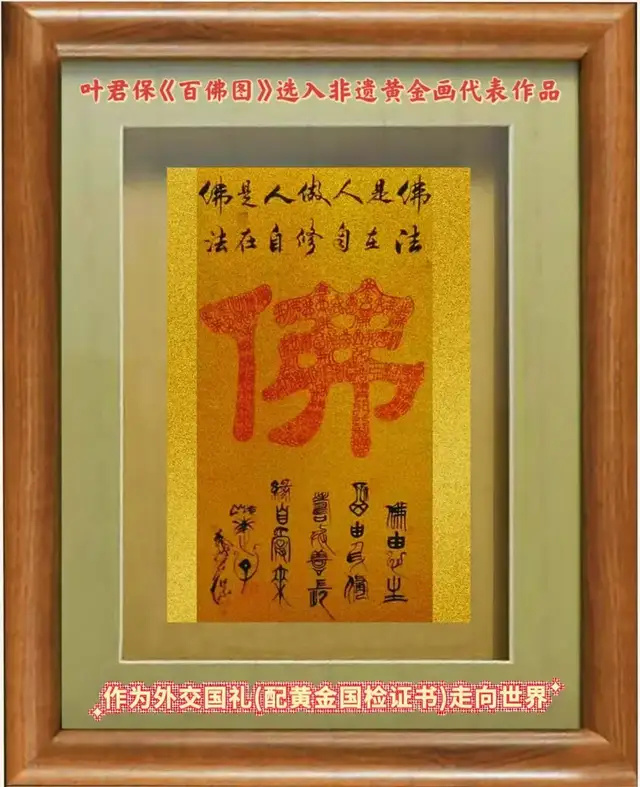 叶君保《百佛图》选入非遗黄金画代表作品
佛是人做人是佛
法在自修自在法
佛
佛由心生
緣自愛來
作为外交国礼(配黄金国检证书)走向世界